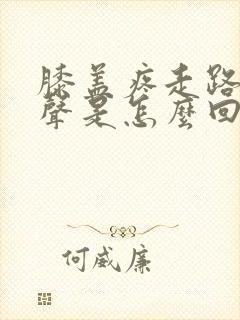 膝盖疼走路
聲是怎麼回
何威廉